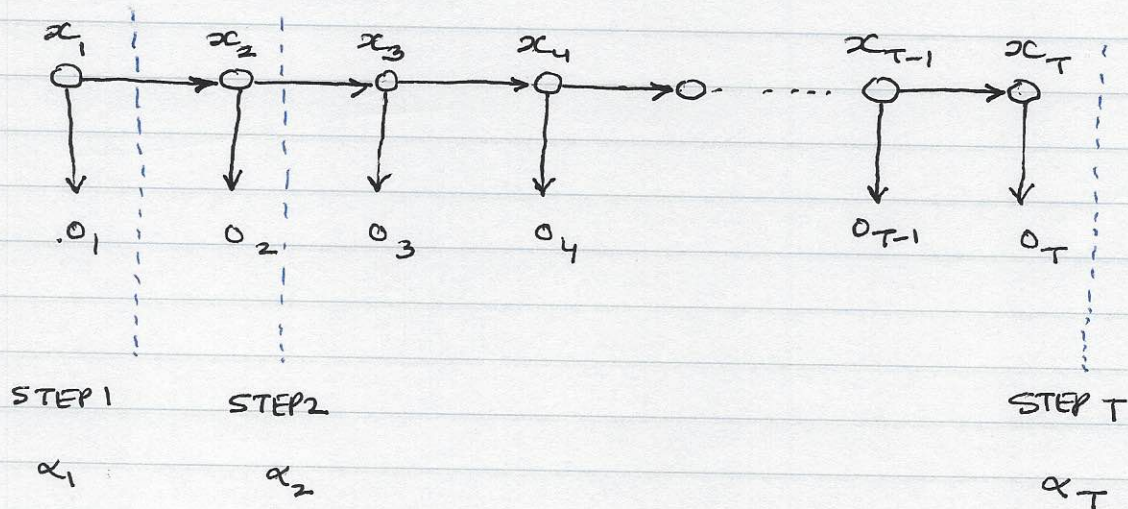 x₁ x₂ x₃ x₄ x_{T-1} x_T
.o₁ o₂ o₃ o₄ o_{T-1} o_T
STEP1 STEP2 STEP T
α₁ α₂ α_T